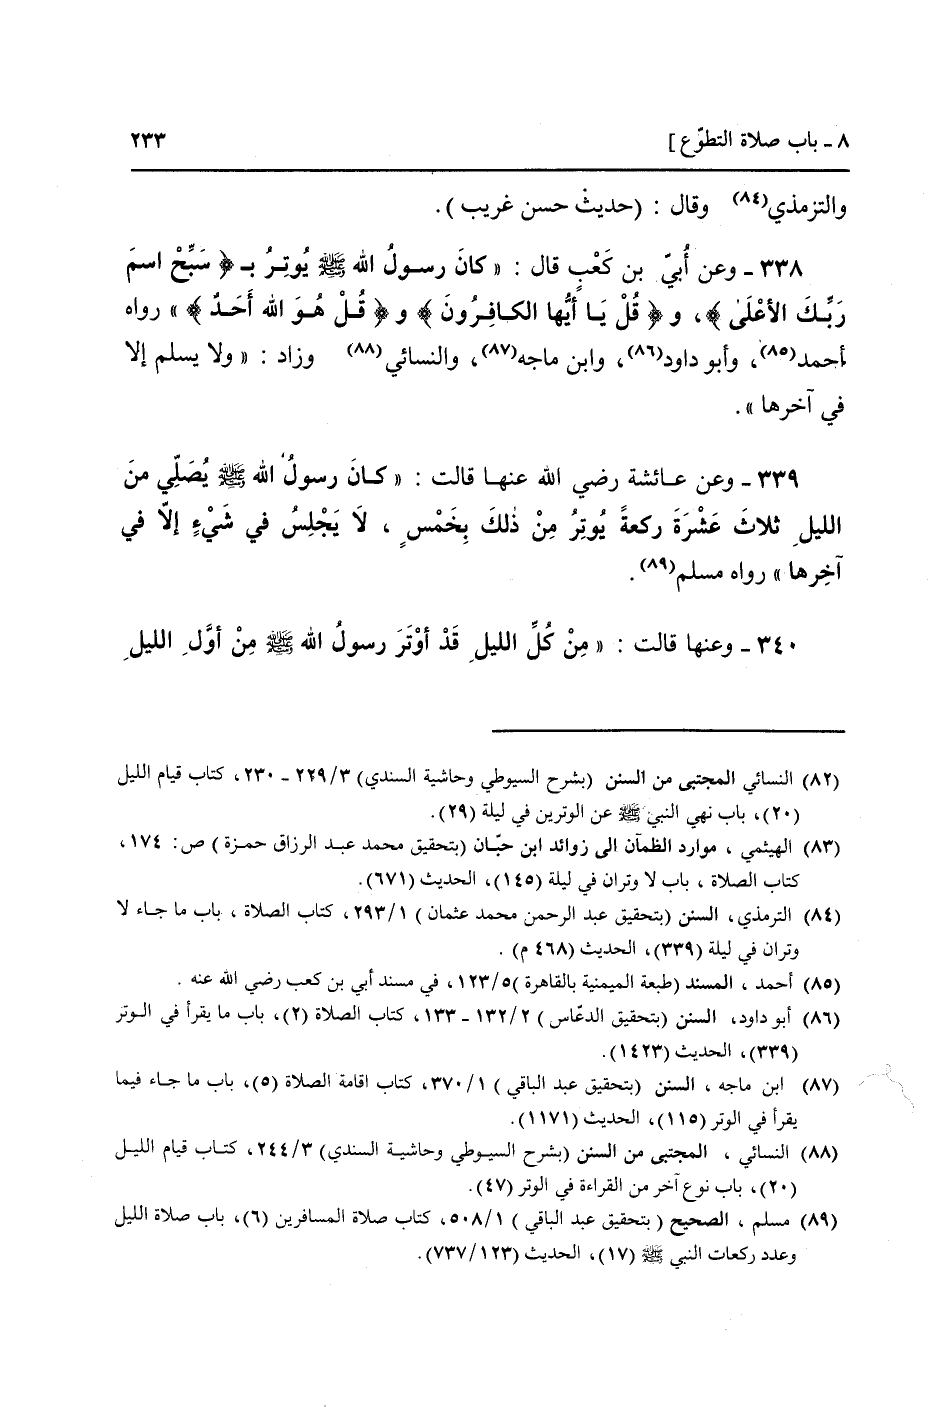 ٨ ـ باب صلاة التطوّع ] ٢٣٣
والترمذي(٨٤) وقال : (حديث حسن غريب ).
٣٣٨ ـ وعن أُبيّ بن كَعْبٍ قال : « كانَ رسولُ الله ﷺ يُوتِرُ بـ ﴿ سَبِّحْ اسمَ
رَبِّكَ الأعْلَىٰ ﴾، و ﴿ قُلْ يَا أَيُّها الكافِرُونَ ﴾ و ﴿ قُلْ هُوَ الله أَحَدٌ ﴾ » رواه
أحمد(٨٥)، وأبو داود(٨٦)، وابن ماجه(٨٧)، والنسائي(٨٨) وزاد : « ولا يسلم إلا
في آخرها ».
٣٣٩ ـ وعن عائشة رضي الله عنها قالت : « كانَ رسولُ الله ﷺ يُصَلِّي منَ
الليلِ ثلاثَ عَشْرَةَ ركعةً يُوتِرُ مِنْ ذٰلكَ بِخَمْسٍ ، لَا يَجْلِسُ في شَيْءٍ إلّا في
آخِرِها » رواه مسلم(٨٩).
٣٤٠ ـ وعنها قالت : « مِنْ كُلِّ الليلِ قَدْ أوْتَرَ رسولُ الله ﷺ مِنْ أوَّلِ الليلِ
(٨٢) النسائي المجتبى من السنن (بشرح السيوطي وحاشية السندي) ٣/ ٢٢٩ ـ ٢٣٠، كتاب قيام الليل
(٢٠)، باب نهي النبي ﷺ عن الوترين في ليلة (٢٩).
(٨٣) الهيثمي ، موارد الظمآن الى زوائد ابن حبّان (بتحقيق محمد عبد الرزاق حمزة ) ص: ١٧٤،
كتاب الصلاة ، باب لا وتران في ليلة (١٤٥)، الحديث (٦٧١).
(٨٤) الترمذي، السنن (بتحقيق عبد الرحمن محمد عثمان ) ١/ ٢٩٣، كتاب الصلاة ، باب ما جاء لا
وتران في ليلة (٣٣٩)، الحديث (٤٦٨ م) .
(٨٥) أحمد ، المسند (طبعة الميمنية بالقاهرة )٥/ ١٢٣، في مسند أبي بن كعب رضي الله عنه .
(٨٦) أبو داود، السنن (بتحقيق الدعّاس ) ٢/ ١٣٢ ـ ١٣٣، كتاب الصلاة (٢)، باب ما يقرأ في الوتر
(٣٣٩)، الحديث (١٤٢٣).
(٨٧) ابن ماجه ، السنن (بتحقيق عبد الباقي ) ١/ ٣٧٠، كتاب اقامة الصلاة (٥)، باب ما جاء فيما
يقرأ في الوتر (١١٥)، الحديث (١١٧١).
(٨٨) النسائي ، المجتبى من السنن (بشرح السيوطي وحاشية السندي) ٣/ ٢٤٤، كتاب قيام الليل
(٢٠)، باب نوع آخر من القراءة في الوتر (٤٧).
(٨٩) مسلم ، الصحيح ( بتحقيق عبد الباقي ) ١/ ٥٠٨، كتاب صلاة المسافرين (٦)، باب صلاة الليل
وعدد ركعات النبي ﷺ (١٧)، الحديث (١٢٣/ ٧٣٧).